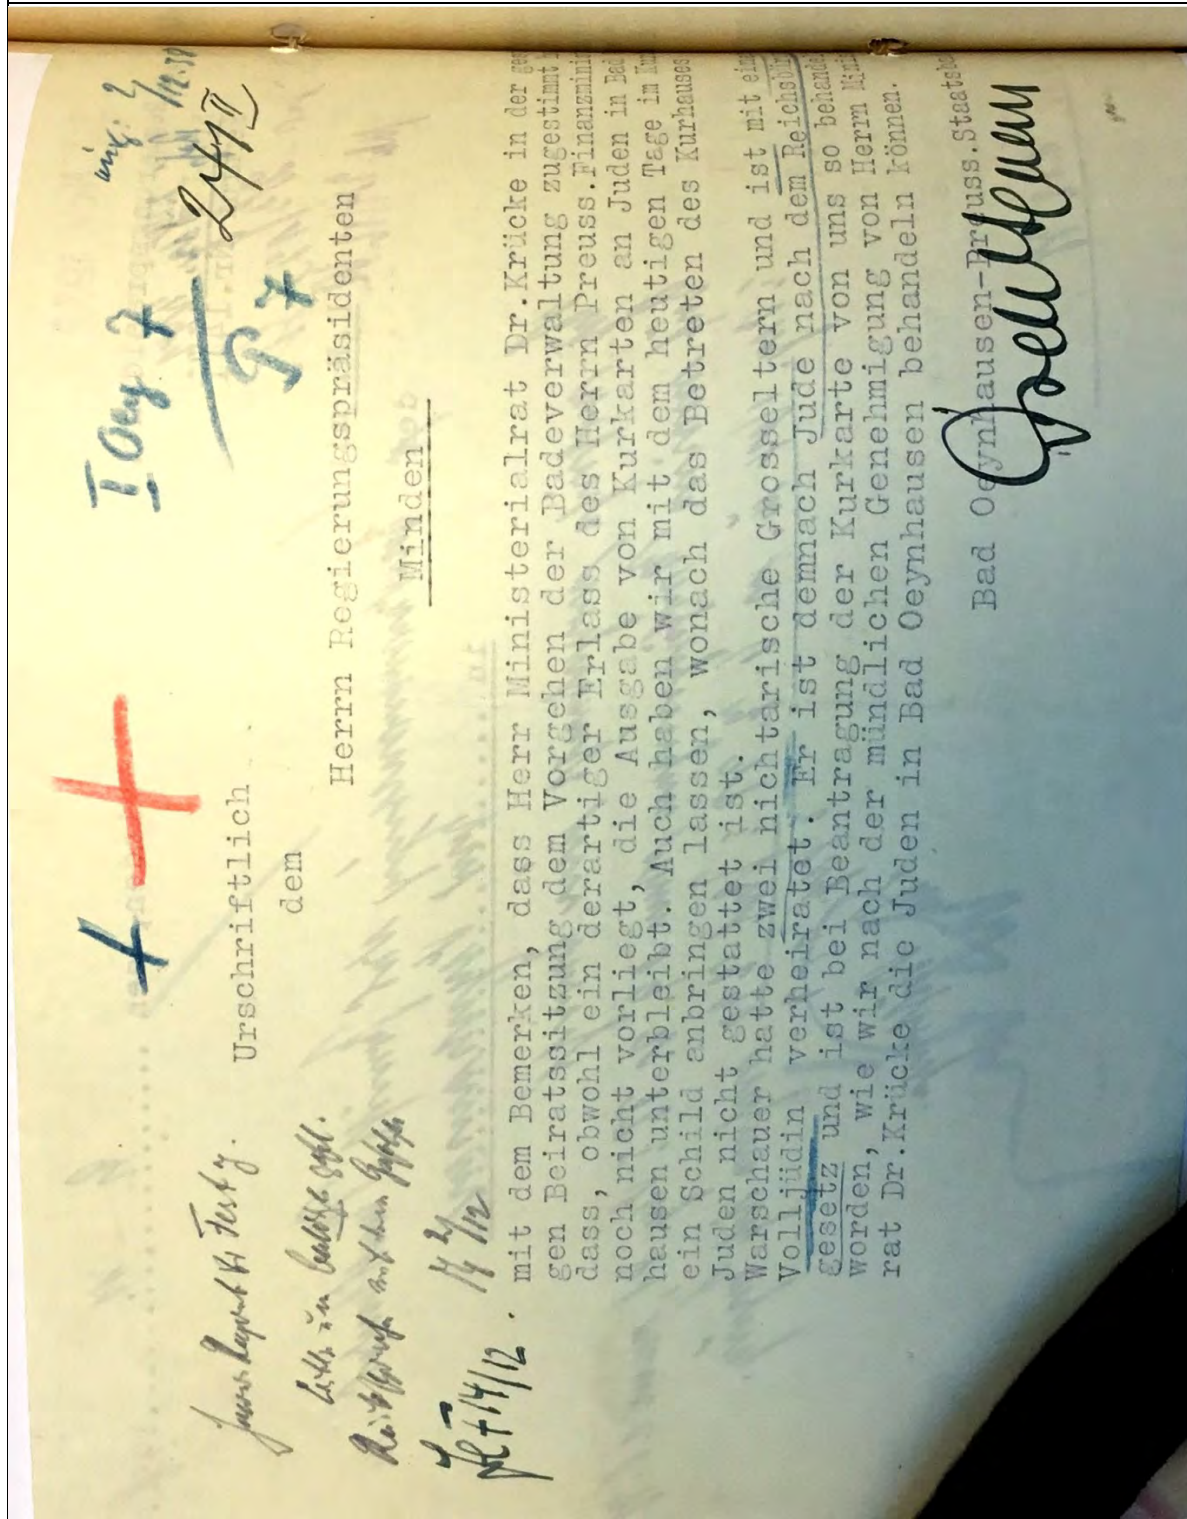 I Oey 7
P 7
24/II
Urschriftlich
dem
Herrn Regierungspräsidenten
Minden
mit dem Bemerken, dass Herr Ministerialrat Dr.Krücke in der
gen Beiratssitzung dem Vorgehen der Badeverwaltung zugestimmt
dass, obwohl ein derartiger Erlass des Herrn Preuss.Finanzmini
noch nicht vorliegt, die Ausgabe von Kurkarten an Juden in Bad
hausen unterbleibt. Auch haben wir mit dem heutigen Tage im Kur
ein Schild anbringen lassen, wonach das Betreten des Kurhauses
Juden nicht gestattet ist.
Warschauer hatte zwei nichtarische Grosseltern und ist mit ein
Volljüdin verheiratet. Er ist demnach Jude nach dem Reichsbür
gesetz und ist bei Beantragung der Kurkarte von uns so behande
worden, wie wir nach der mündlichen Genehmigung von Herrn Mini
rat Dr.Krücke die Juden in Bad Oeynhausen behandeln können.
Bad Oeynhausen-Preuss.Staatsb
14/12